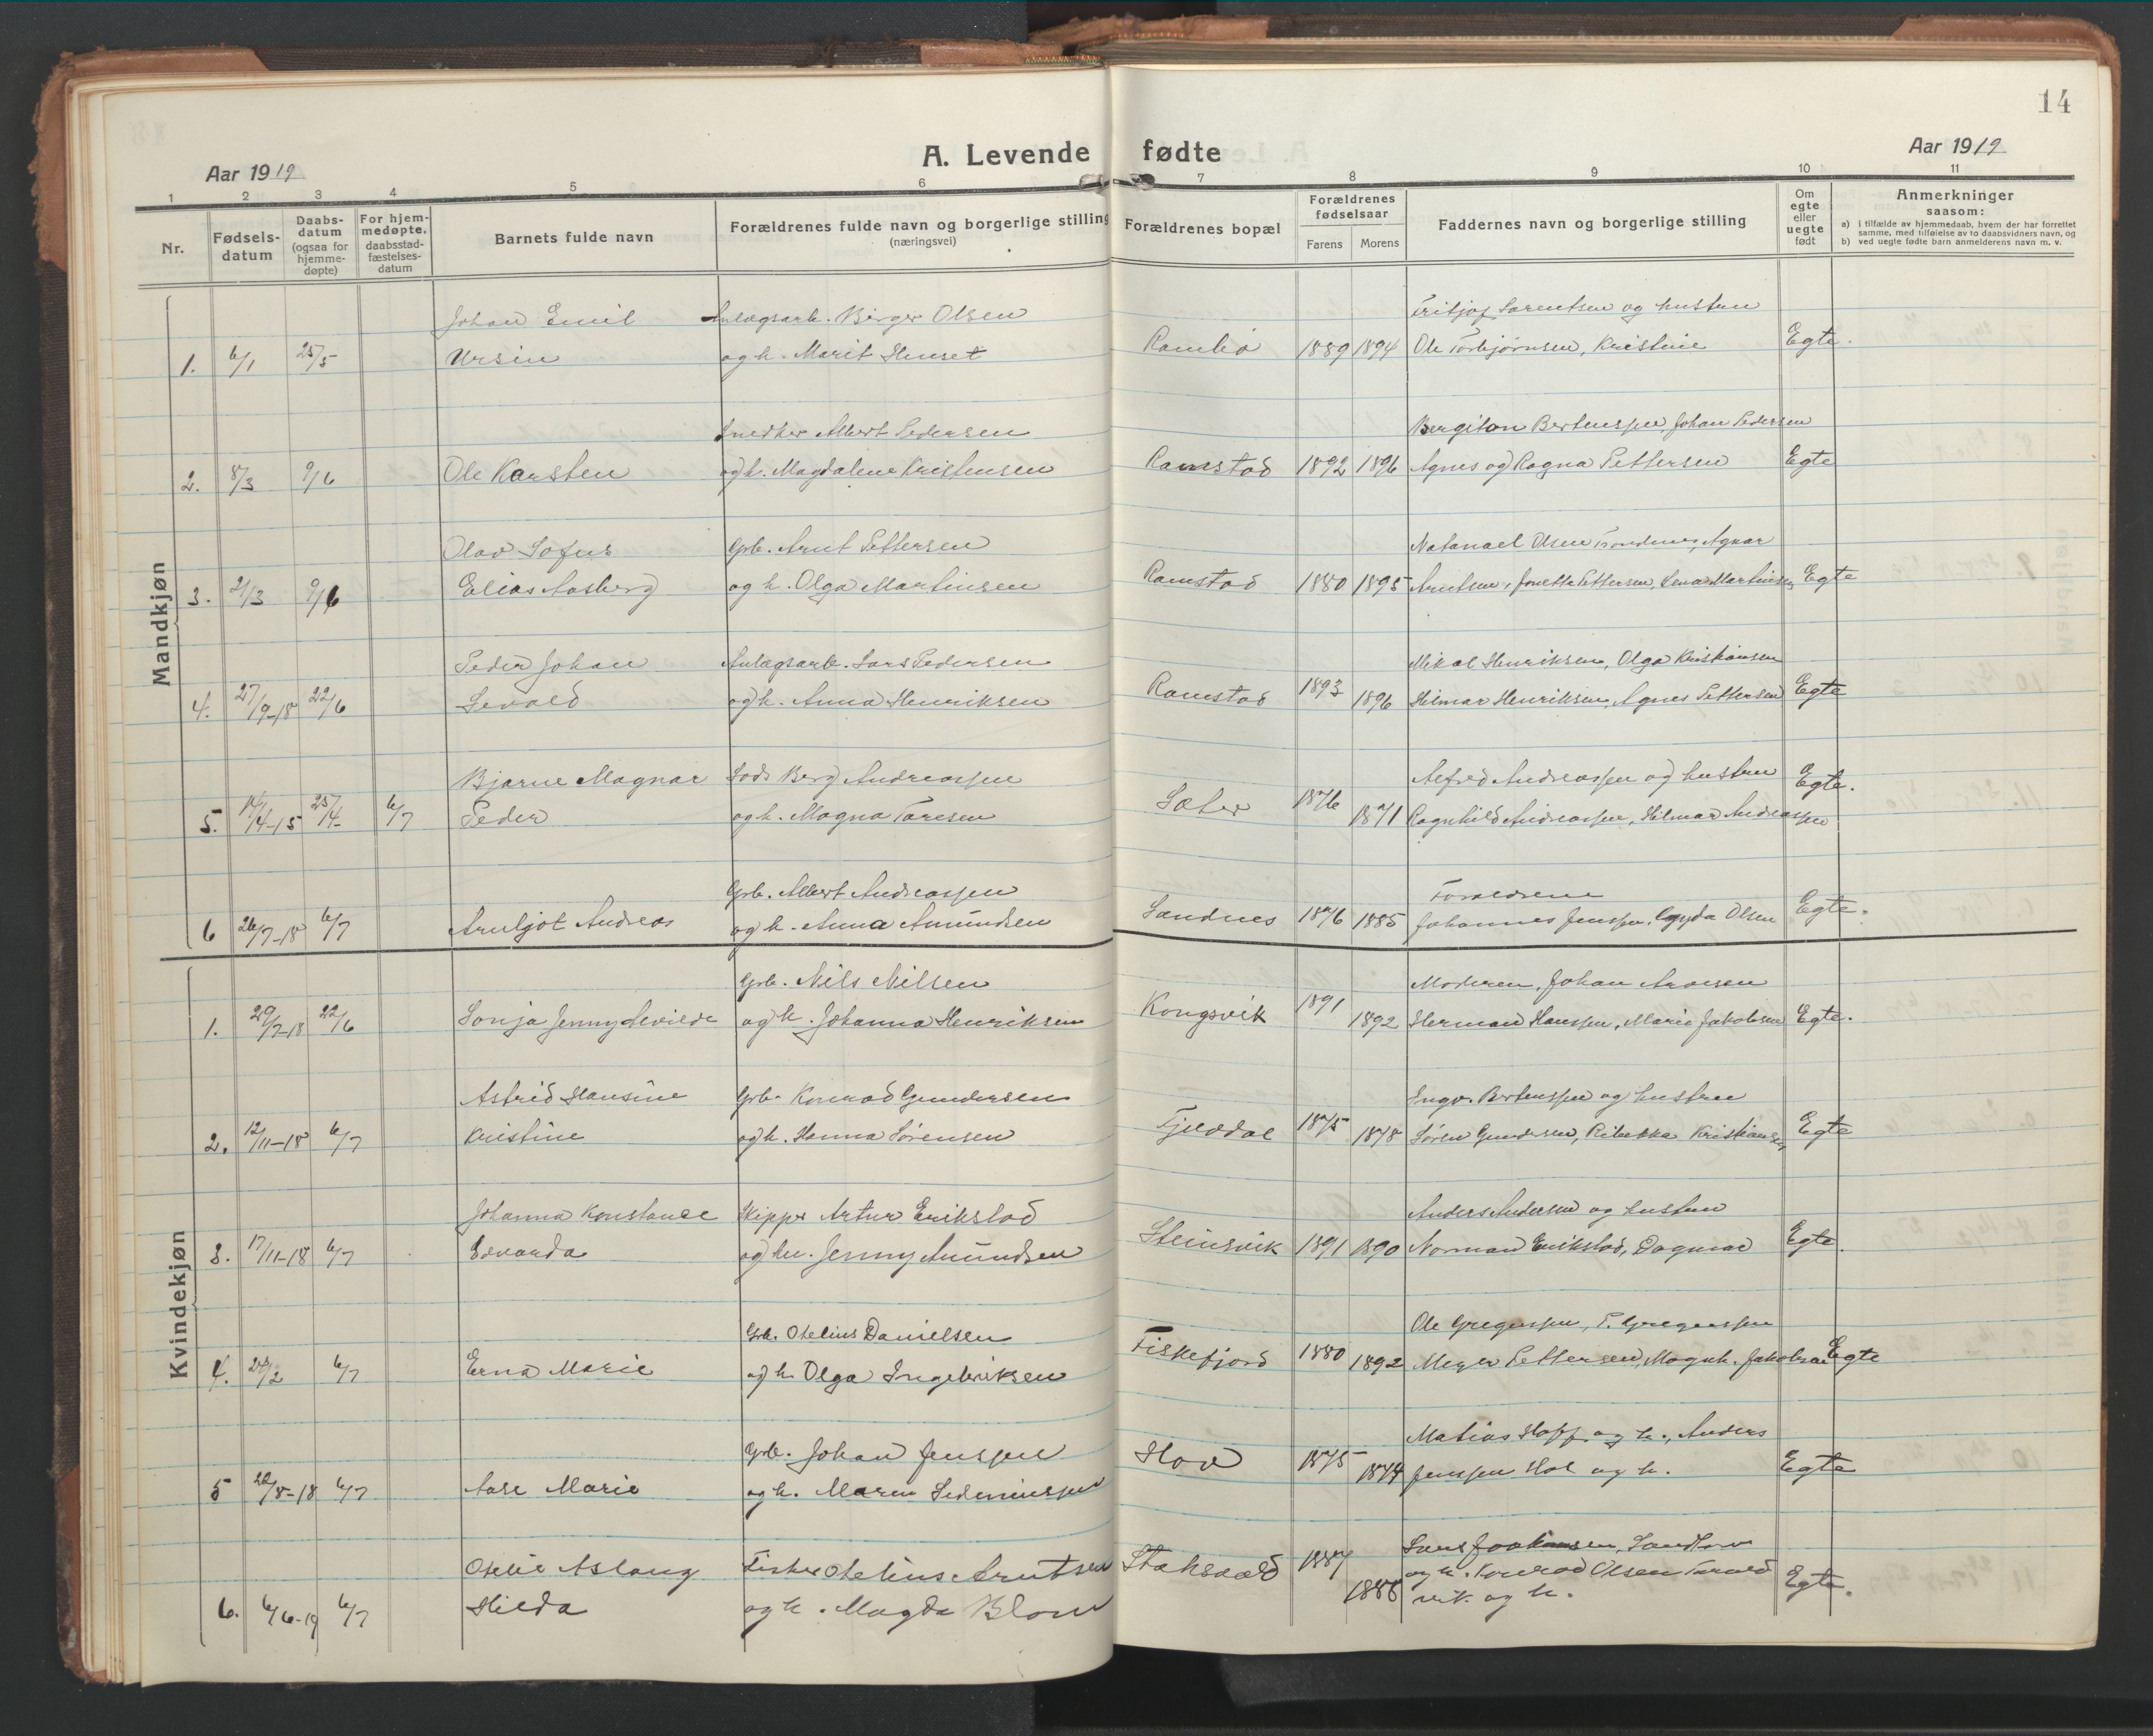 14
A. Levende fødte
Aar 1919
Aar 1919
1 2 3 4 5 6 7 8 9 10 11
Nr.
Fødsels-
datum
Daabs-
datum
(ogsaa for
hjemme-
døpte)
For hjem-
medøpte,
daabsstad-
fæstelses-
datum
Barnets fulde navn
Forældrenes fulde navn og borgerlige stilling
(næringsvei)
Forældrenes bopæl
Forældrenes
fødselsaar
Farens Morens
Faddernes navn og borgerlige stilling
Om
egte
eller
uegte
født
Anmerkninger
saasom:
a) i tilfælde av hjemmedaab, hvem der har forrettet
samme, med tilføielse av to daabsvidners navn, og
b) ved uegte fødte barn anmelderens navn m. v.
Mandkjøn
Johan Emil Anlægsarb. Birger Olsen Fritjof Sørentsen og hustru
1. 6/1 25/5 Ursin og h. Marit Henset 1889 1894 Ole Torbjørnsen, Kristine Egte.
Snedker Albert Pedersen Johan Pedersen
2. 8/3 9/6 Ole Karsten og h. Magdalene Kristensen Ramstad 1892 1896 Agnes og Ragna Pettersen Egte
Olav Sofus Grb. Arnt Pettersen Natanael Olsen Trondenes, Agnar
3. 21/3 9/6 Elias Aasberg og h. Olga Martinsen Ramstad 1880 1895 Arntsen, Jonetta Pettersen, Lena Martinsen Egte
Peder Johan Anlægsarb. Lars Pedersen Mikal Henriksen, Olga Kristiansen
4. 27/9-18 22/6 Sevald og h. Anna Henriksen Ramstad 1893 1896 Hilmar Henriksen, Agnes Pettersen Egte
Bjarne Magnar Berg Andreassen Alfred Andreassen og hustru
5. 14/4-15 25/4 6/7 Peder og h. Magna Taresen Sæter 1876 1871 Ragnhild Andreassen, Hilmar Andreassen Egte.
Grb. Albert Andreassen Forældrene
6 26/7-18 6/7 Arnljot Andreas og h. Anna Amundsen Sandnes 1876 1885 Johannes Jenssen, Gyda Olsen Egte.
Kvindekjøn
Grb. Nils Nilsen Moderen, Johan Arvesen
1. 29/7-18 22/6 Sonja Jenny og h. Johanna Henriksen Kongsvik 1891 1892 Herman Hanssen, Marie Jakobsen Egte.
Astrid Hansine Grb. Konrad Gundersen Ingv. Bertenssen og hustru
2. 12/11-18 6/7 Kristine og h. Hanna Sørensen Tjeldal 1875 1878 Søren Gundersen, Rebekka Kristiansen Egte
Johanna Konstance Skipper Artur Erikstad Anders Andersen og hustru
3. 17/11-18 6/7 Edvarda og hu. Jenny Amundsen Steinsvik 1891 1890 Norman Erikstad, Dagmar Egte.
Grb. Otelius Danielsen Ole Gregussen, P. Gregussen
4. 24/2 6/7 Erna Marie og h. Olga Ingebriksen Fiskefjord 1880 1892 Meyer Pettersen, Magnh. Jakobsen Egte
Grb. Johan Jenssen Matias Hoff og h., Anders
5 6/7 Aase Marie og h. Maren Hov 1875 1874 Jenssen Hol og h. Egte
Otelie Aslaug Fisker Otelius Arntsen Lars Joakimsen, Sandtorv
6. 6/6-19 6/7 Hilda og h. Magda Blom Staksvold 1887 1888 og h. Konrad Olsen
vik og h. Egte.